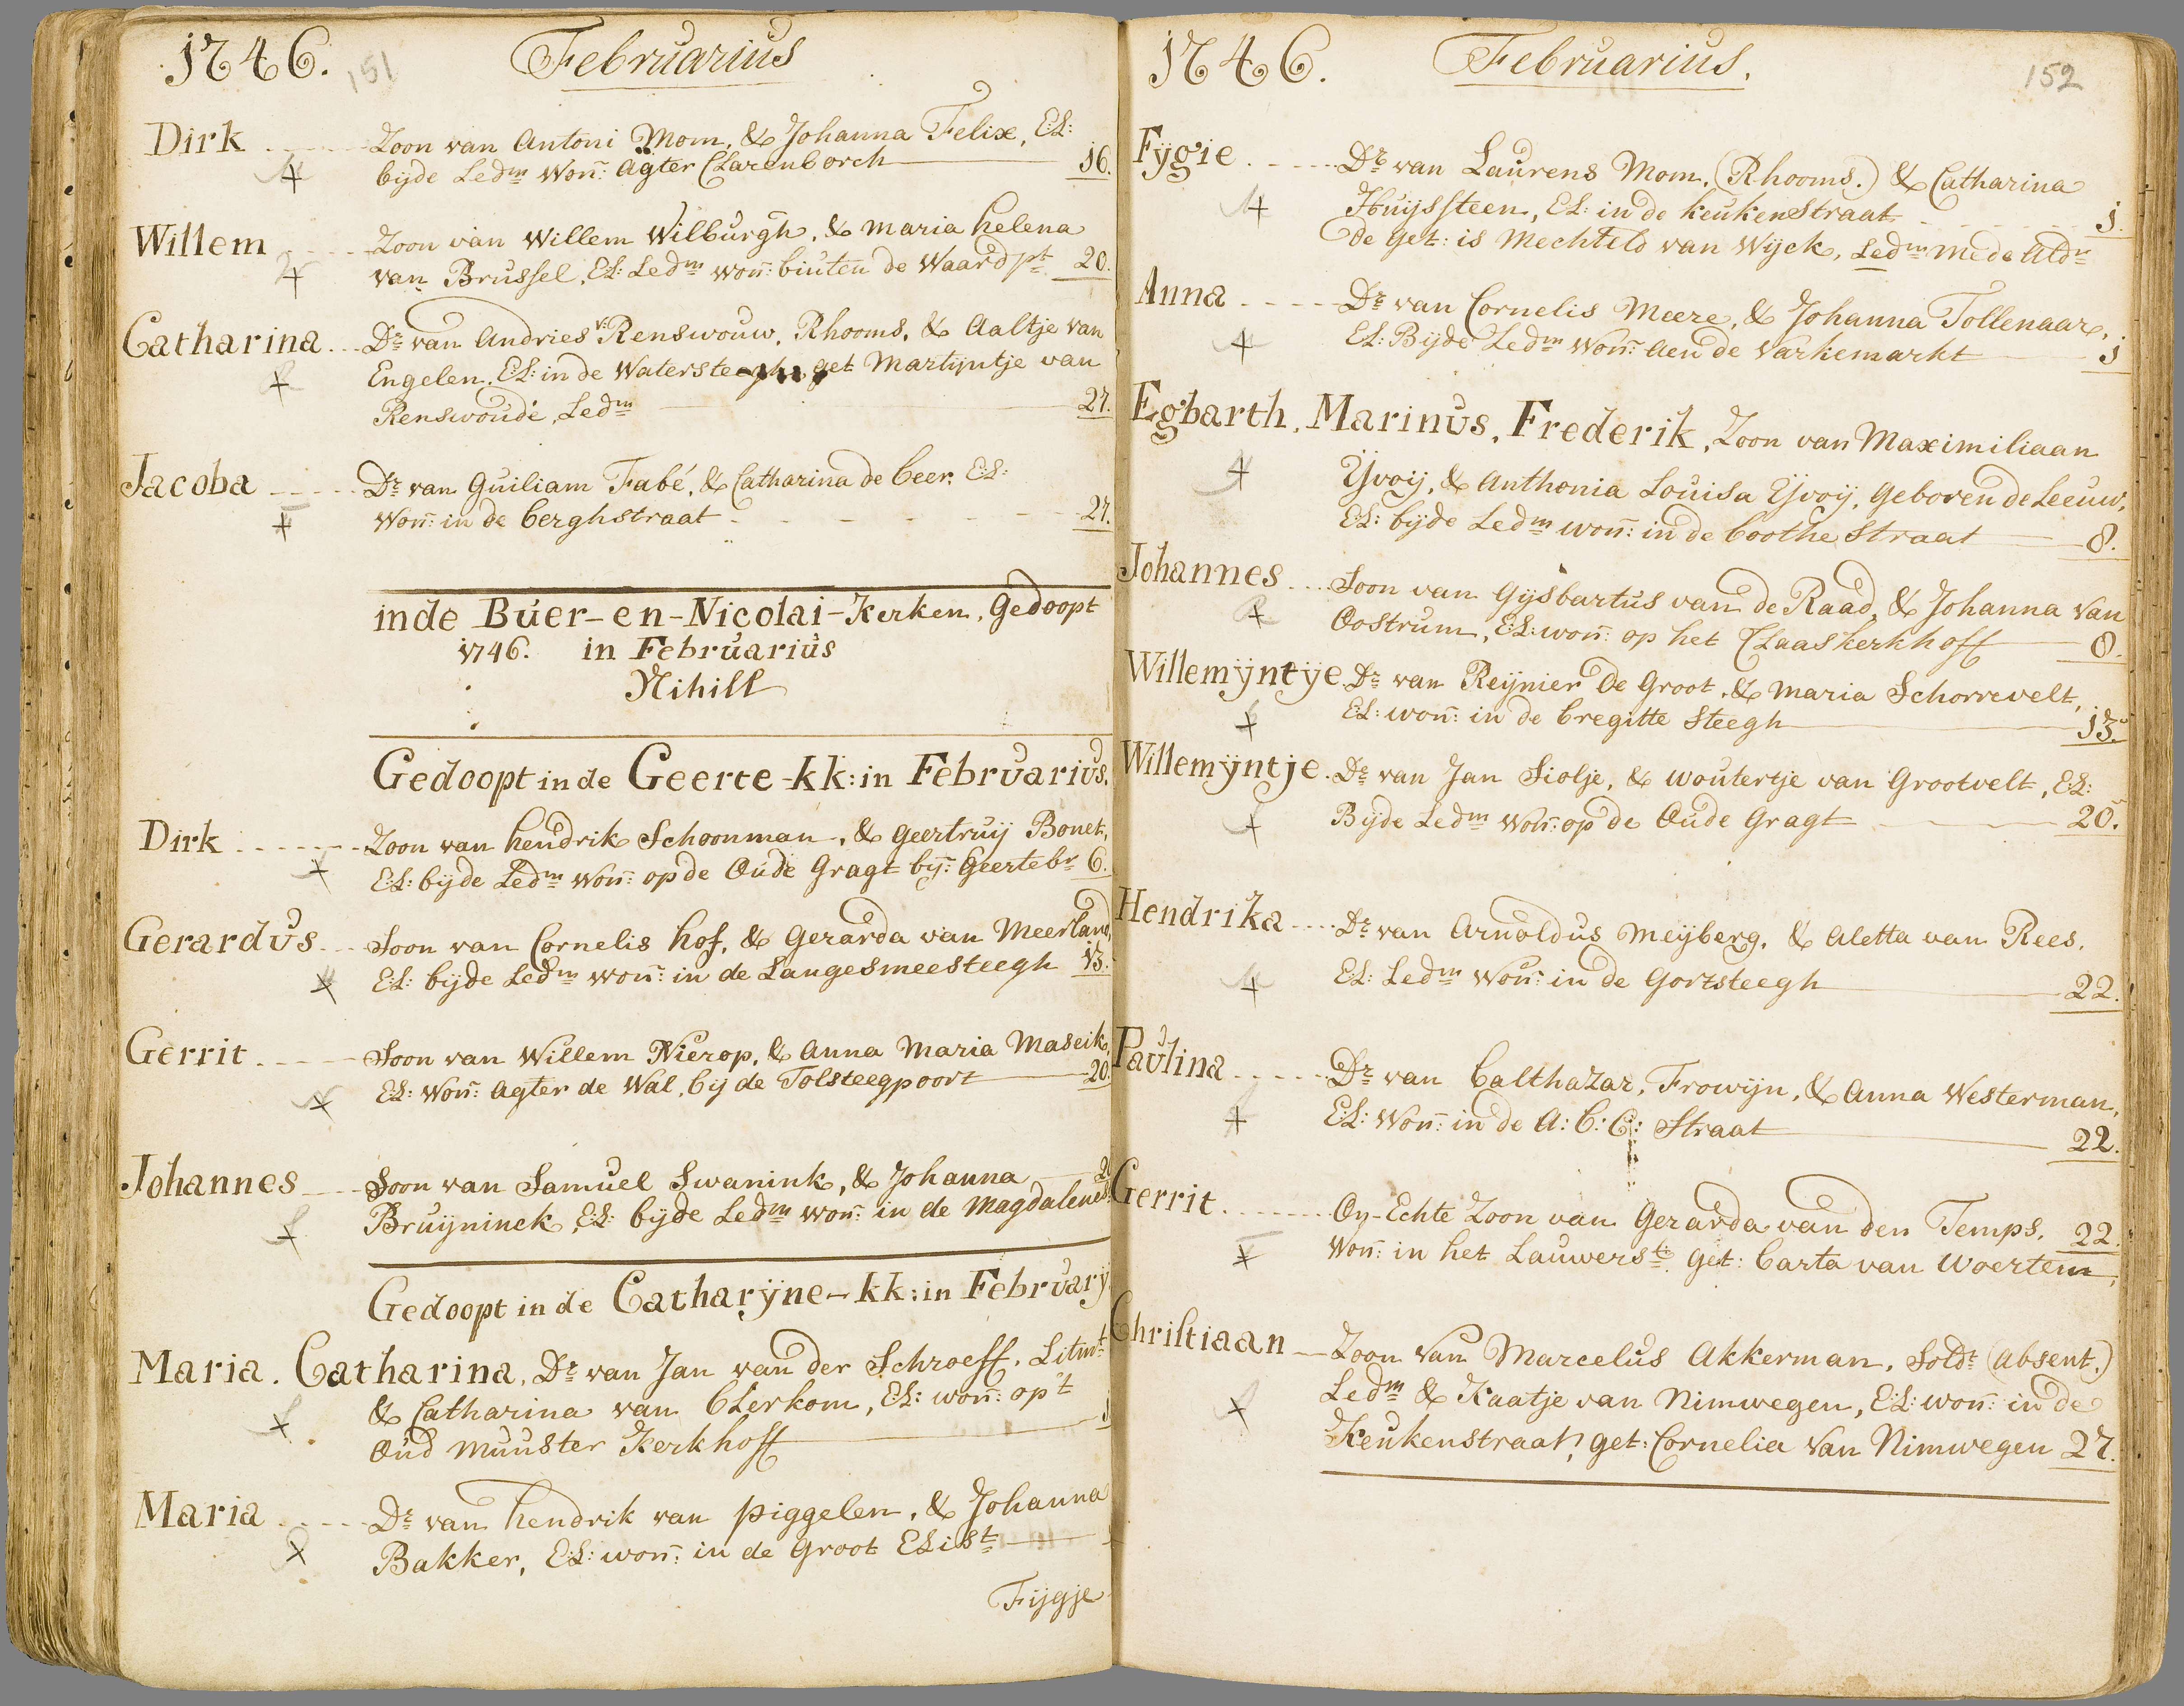 1746. 151 Februarius
Dirk Zoon van Antoni Mom, & Johanna Felix, E:L:
bijde Ledm won: agter Clarenborch 16.
Willem Zoon van Willem Wilburgh, & Maria helena
van Brussel, E:L: Ledm won: buiten de Waardpt 20.
Catharina Dr van Andries v: Renswouw, Rhooms, & Aaltje van
Engelen, E:L: in de Watersteegh, get Martijntje van
Renswoude, Ledm 27.
Jacoba Dr van Guiliam Fabé, & Catharina de beer, E:L:
Won: in de berghstraat 27.
inde Buer-en-Nicolai-Kerken, Gedoopt
1746. in Februarius
Nihill
Gedoopt in de Geerte-kk: in Februarius.
Dirk Zoon van hendrik Schoonman, & Geertruij Bonet,
E:L: bijde Ledm won: op de Oude Gragt bij: Geertebr 6.
Gerardus Soon van Cornelis hof, & Gerarda van Meerland,
E:L: bijde Ledm won: in de Langesmeesteegh 13.
Gerrit Soon van Willem Nierop, & Anna Maria Maseik,
E:L: won: agter de Wal, bij de Tolsteegpoort 20.
Johannes Soon van Samuel Swanink, & Johanna
Bruijninck, E:L: bijde Ledm won: in de Magdalenes:
Gedoopt in de Catharÿne-kk: in Februarÿ
Maria. Catharina, Dr van Jan van der Schroeff, Litmt
& Catharina van Clerkom, E:L: won: op't
Oud Munster Kerkhoff 1
Maria Dr van hendrik van piggelen, & Johanna
Bakker, E:L: won: in de Groot Elist
Fijgje
1746. Februarius. 152
Fÿgie Dr van Laurens Mom, (Rhooms.) & Catharina
Huijssteen, E:L: in de keukenstraat 1.
de Get: is Mechteld van Wijck, Ledm mede Aldr
Anna Dr van Cornelis Meere, & Johanna Tollenaar,
E:L: Bijde Ledm won: aen de Varkemarkt 1
Egbarth, Marinus, Frederik, Zoon van Maximiliaan
Yvoij, & Anthonia Louisa Yvoij, Geboren de Leeuw,
E:L: bijde Ledm won: in de boothe straat 8.
Johannes Soon van Gijsbartus van de Raad, & Johanna van
Oostrum, E:L: won: op het Claaskerkhoff 8.
Willemÿntÿe Dr van Reijnier de Groot, & Maria Schorrevelt,
E:L: won: in de bregitte steegh 13.
Willemÿntje Dr van Jan Siolje, & Woutertje van Grootvelt, E:L:
Bijde Ledm won: op de Oude Gragt 20.
Hendrika Dr van Arnoldus Meijberg, & Aletta van Rees,
E:L: Ledm won: in de Gortsteegh 22.
Paulina Dr van Balthazar, Frowijn, & Anna Westerman,
E:L: won: in de A: B: C: Straat 22.
Gerrit On-Echte Zoon van Gerarda van den Temps, 22.
Won: in het Lauwerst: get: Barta van Woertem,
Christiaan Zoon van Marcelus Akkerman, Soldt (absent.)
Ledm & Kaatje van Nimwegen, E:L: won: in de
Keukenstraat, get: Cornelia van Nimwegen 27.